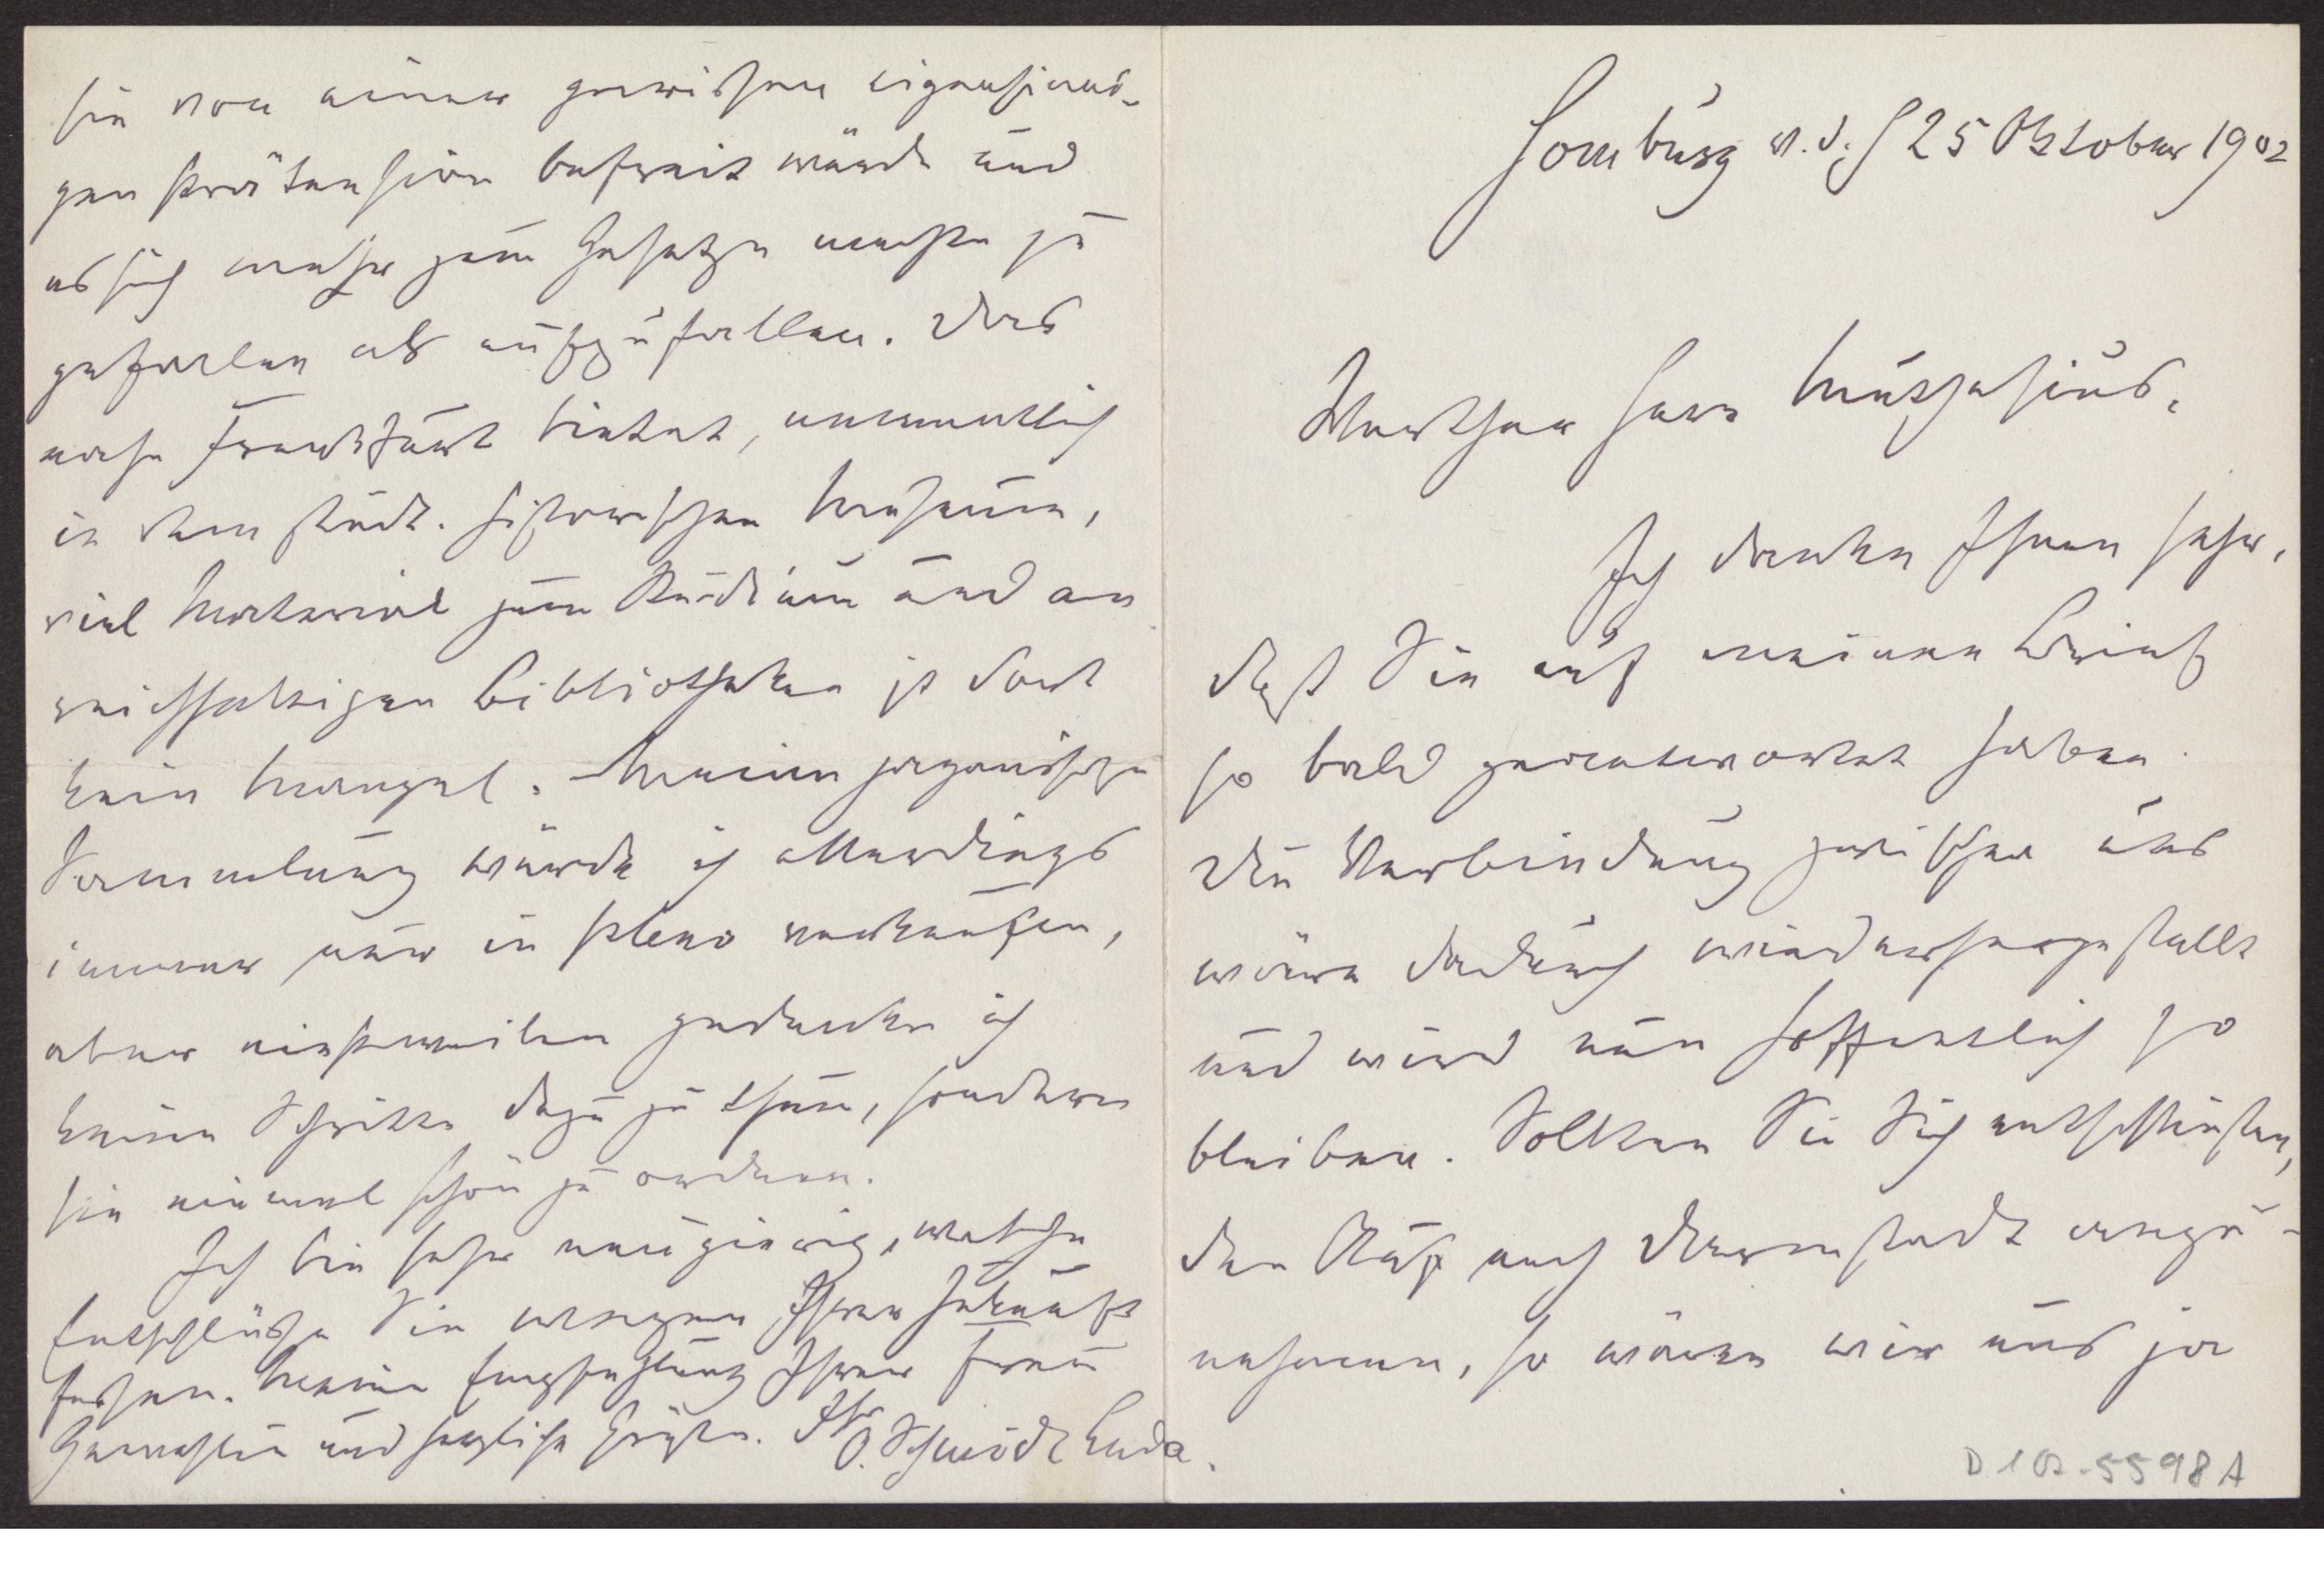 Homburg v. d. H 25 Oktober 1902
Werther Herr Muthesius.
Ich danke Ihnen sehr,
daß Sie auf meinen Brief
so bald geantwortet haben.
Die Verbindung zwischen uns
wäre dadurch wiederhergestellt
und wird nun hoffentlich so
bleiben. Sollten Sie Sich entschließen,
den Ruf nach Darmstadt anzu-
nehmen, so wären wir uns ja
D 102-5598 A
sie von einer gewissen eigensinni-
gen Prätension befreit würde und
es sich mehr zum Gesetze machte zu
gefallen als aufzufallen. Das
nahe Frankfurt bietet, namentlich
in dem städt. historischen Museum,
viel Material zum Studium und an
reichhaltigen Bibliotheken ist dort
kein Mangel. Meine japanische
Sammlung würde ich allerdings
immer nur in pleno verkaufen,
aber einstweilen gedenke ich
keine Schritte dazu zu thun, sondern
sie einmal schön zu ordnen.
Ich bin sehr neugierig, welche
Entschlüsse Sie wegen Ihrer Zukunft
fassen. Meine Empfehlung Ihrer Frau
Gemahlin und herzliche Grüße. Ihr O. Schmidt